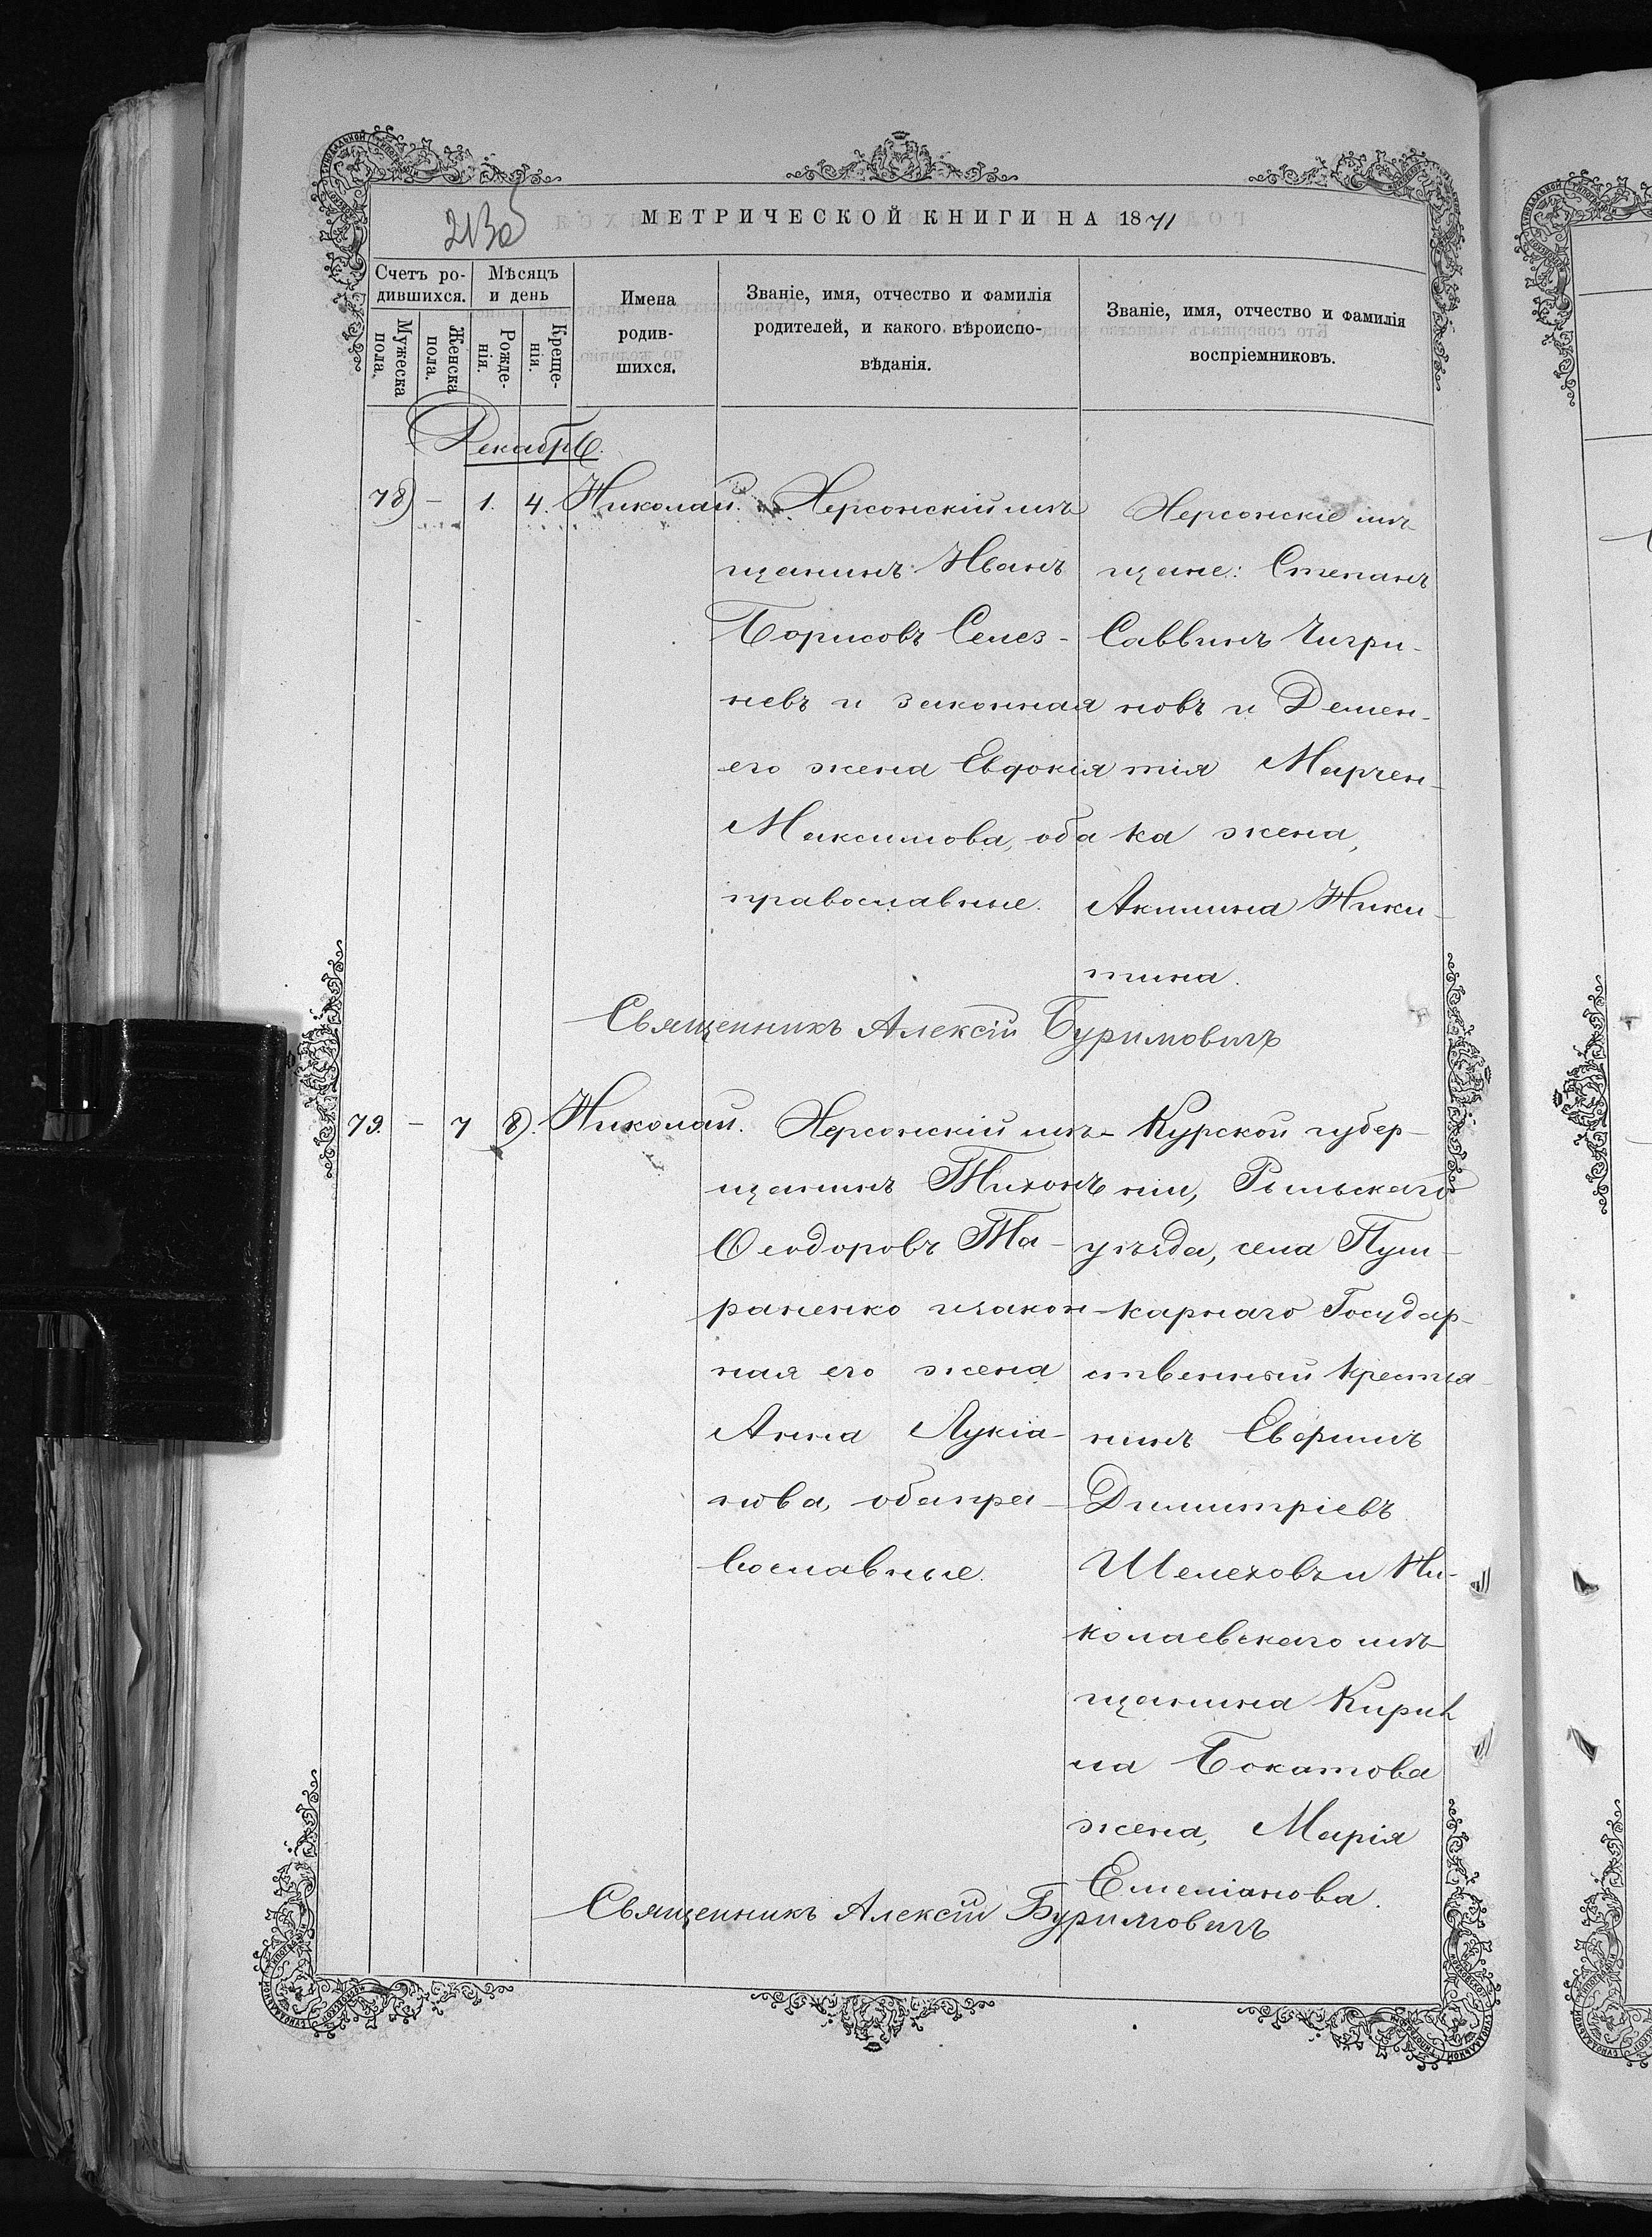 МЕТРИЧЕСКОЙ КНИГИ НА 1871
213об
Счетъ ро-
дившихся.
Мужеска
пола.
Женска
пола.
Мѣсяцъ
и день
Рожде-
нія.
Креще-
нія.
Имена
родив-
шихся.
Званіе, имя, отчество и фамилія
родителей, и какого вѣроиспо-
вѣданія.
Званіе, имя, отчество и фамилія
воспріемниковъ.
Декабрь.
78) - 1. 4. Николай.
Херсонскій мѣ
щанинъ Иванъ
Борисовъ Селез-
невъ и законная
его жена Евдокія
Максимова, оба
православные.
Херсонскіе мѣ-
щане: Степанъ
Саввинъ Чигри-
новъ и Демен-
тія Марчен-
ка жена,
Акилина Ники-
тина.
Священникъ Алексій Буримовичъ
79. - 7 8). Николай.
Херсонскій мѣ-
щанинъ Тихонъ
Ѳеодоровъ Та-
раненко и закон-
ная его жена
Анна Лукіа-
нова, оба пра-
вославные.
Курской губер-
ніи, Рыльскаго
уѣзда, села Пуш-
карнаго Государ-
ственный крестья-
нинъ Евфимъ
Димитріевъ
Шелеховъ и Ни-
колаевскаго мѣ-
щанина Кирил
ла Бокатова
жена, Марія
Емеліанова.
Священникъ Алексій Буримовичъ